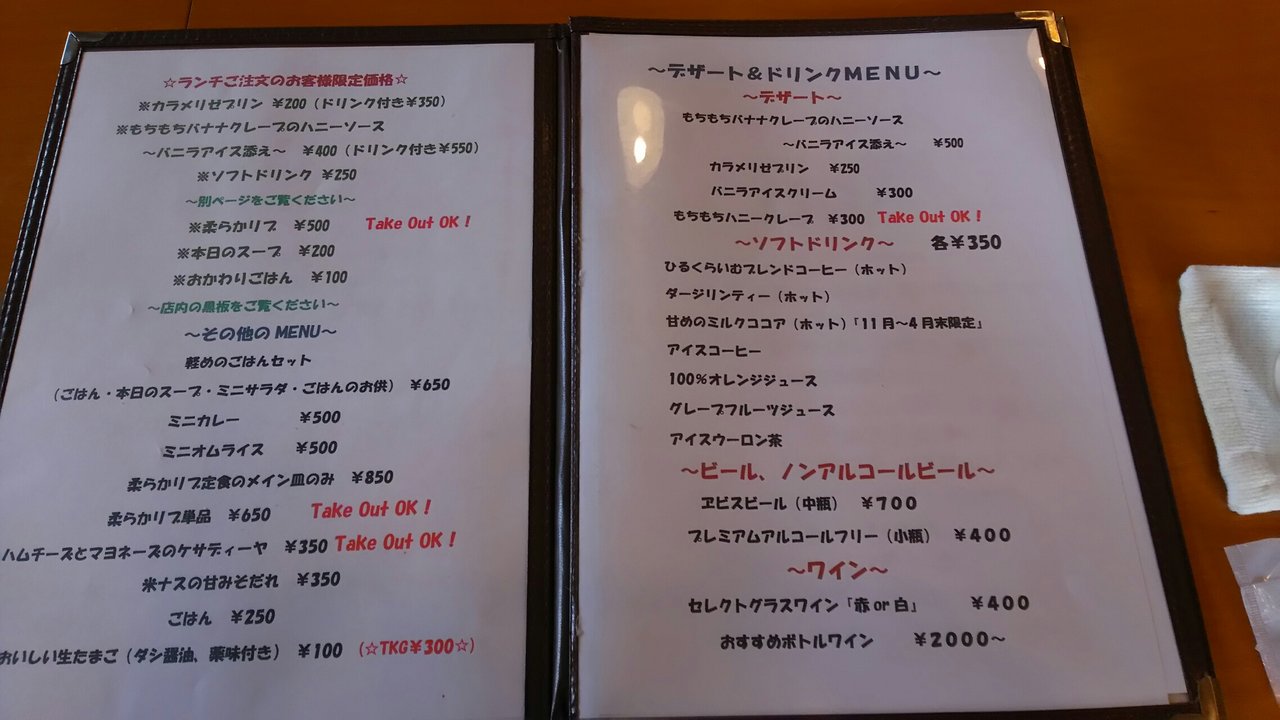 ☆ランチご注文のお客様限定価格☆
※カラメリゼプリン ¥200（ドリンク付き¥350）
※もちもちバナナクレープのハニーソース
～バニラアイス添え～ ¥400（ドリンク付き¥550）
※ソフトドリンク ¥250
～別ページをご覧ください～
※柔らかリブ ¥500 Take Out OK！
※本日のスープ ¥200
※おかわりごはん ¥100
～店内の黒板をご覧ください～
～その他のMENU～
軽めのごはんセット
（ごはん・本日のスープ・ミニサラダ・ごはんのお供） ¥650
ミニカレー ¥500
ミニオムライス ¥500
柔らかリブ定食のメイン皿のみ ¥850
柔らかリブ単品 ¥650 Take Out OK！
ハムチーズとマヨネーズのケサディーヤ ¥350 Take Out OK！
米ナスの甘みそだれ ¥350
ごはん ¥250
おいしい生たまご（ダシ醤油、薬味付き） ¥100 （☆TKG¥300☆）
～デザート＆ドリンクMENU～
～デザート～
もちもちバナナクレープのハニーソース
～バニラアイス添え～ ¥500
カラメリゼプリン ¥250
バニラアイスクリーム ¥300
もちもちハニークレープ ¥300 Take Out OK！
～ソフトドリンク～ 各¥350
ひるくらいむブレンドコーヒー（ホット）
ダージリンティー（ホット）
甘めのミルクココア（ホット）「11月～4月末限定」
アイスコーヒー
100%オレンジジュース
グレープフルーツジュース
アイスウーロン茶
～ビール、ノンアルコールビール～
ヱビスビール（中瓶） ¥700
プレミアムアルコールフリー（小瓶） ¥400
～ワイン～
セレクトグラスワイン「赤or白」 ¥400
おすすめボトルワイン ¥2000～